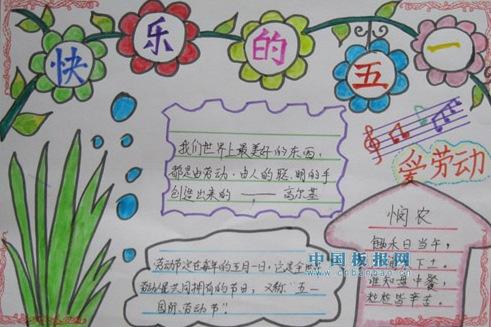 快乐的五一
我们世界上最美好的东西，
都是由劳动、由人的聪明的手
创造出来的 —— 高尔基
爱劳动
悯农
锄禾日当午，
下土，
谁知盘中餐
粒粒皆辛苦。
劳动节定在每年的五月一日，它是全
共同拥有的节日，又称"五一
国际劳动节"。
中国板报网